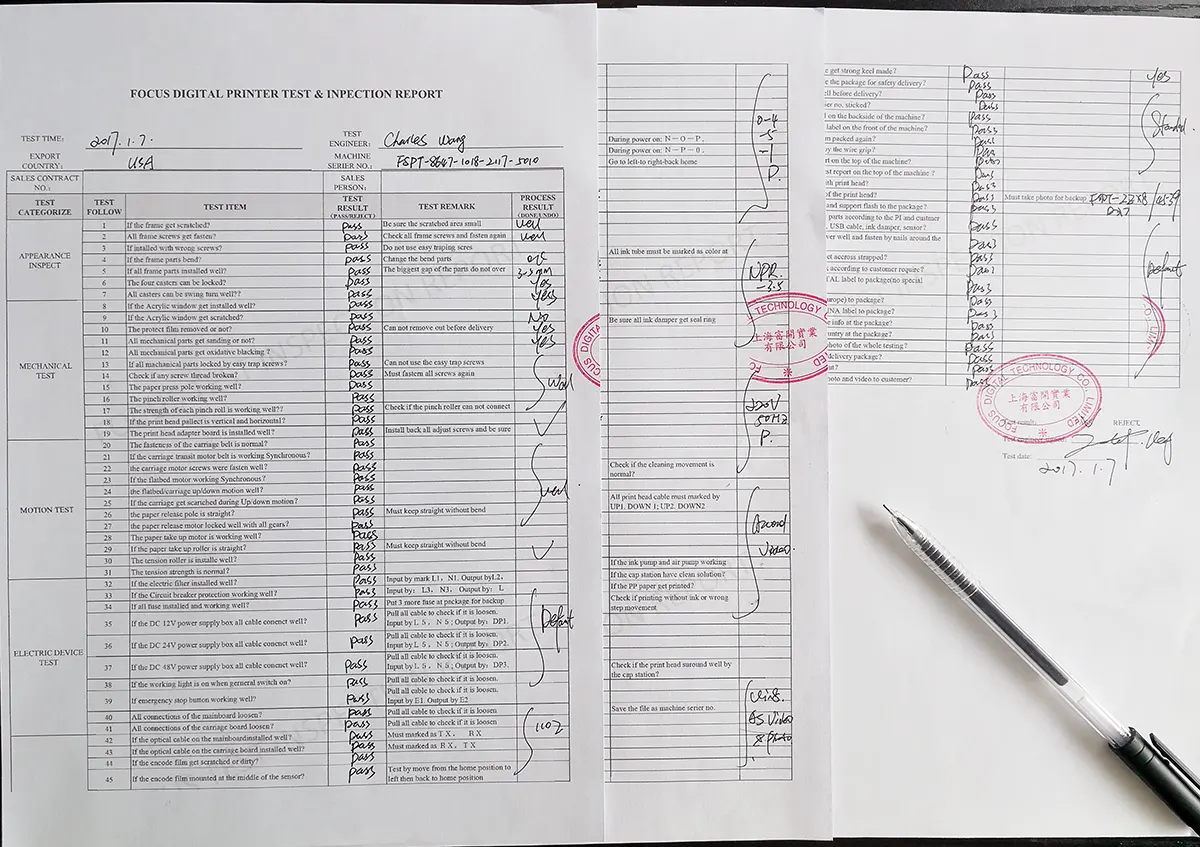 FOCUS DIGITAL PRINTER TEST & INPECTION REPORT
TEST TIME: 2017.1.7. TEST ENGINEER: Charles Wang
EXPORT COUNTRY: USA MACHINE SERIER NO.: FSPT-8647-1018-2117-5010
SALES CONTRACT NO.: SALES PERSON:
TEST CATEGORIZE TEST FOLLOW TEST ITEM TEST RESULT (PASS/REJECT) TEST REMARK PROCESS RESULT (DONE/UNDO)
APPEARANCE INSPECT
1 If the frame get scratched? pass Be sure the scratched area small well
2 All frame screws get fasten? pass Check all frame screws and fasten again well
3 If intalled with wrong screws? pass Do not use easy traping scres
4 If the frame parts bend? pass Change the bend parts
5 If all frame parts installed well? pass The biggest gap of the parts do not over
6 The four casters can be locked? pass Yes
7 All casters can be swing turn well?? pass Yes
8 If the Acrylic window get installed well? pass
9 If the Acrylic window get scratched? pass No
10 The protect film removed or not? pass Can not remove out before delivery Yes
MECHANICAL TEST
11 All mechanical parts get sanding or not? pass Yes
12 All mechanical parts get oxidative blacking? pass
13 If all mechanical parts locked by easy trap screws? pass Can not use the easy trap screws
14 Check if any screw thread broken? pass Must fastern all screws again
15 The paper press pole working well? pass
16 The pinch roller working well? pass
17 The strength of each pinch roll is working well?? pass Check if the pinch roller can not connect
18 If the print head pallect is vertical and horizontal? pass
19 The print head adapter board is installed well? pass Install back all adjust screws and be sure
MOTION TEST
20 The fasteness of the carriage belt is normal? pass
21 If the carriage transit motor belt is working Synchronous? pass
22 the carriage motor screws were fasten well? pass
23 If the flatbed motor working Synchronous? pass
24 the flatbed/carriage up/down motion well? pass
25 If the carriage get scartched during Up/down motion? pass
26 the paper release pole is straight? pass Must keep straight without bend
27 the paper release motor locked well with all gears? pass
28 The paper take up motor is working well? pass
29 If the paper take up roller is straight? pass Must keep straight without bend
30 The tension roller is installe well? pass
31 The tension strength is normal? pass
ELECTRIC DEVICE TEST
32 If the electric filter installed well? pass Input by mark L1, N1, Output byL2,
33 If the Circuit breaker protection working well? pass Input by: L3, N3, Output by: L
34 If all fuse installed and working well? pass Put 3 more fuse at package for backup
35 If the DC 12V power supply box all cable conenct well? pass Pull all cable to check if it is loosen. Input by L 5, N 5; Output by: DP1.
36 If the DC 24V power supply box all cable conenct well? pass Pull all cable to check if it is loosen. Input by L 5, N 5; Output by: DP2.
37 If the DC 48V power supply box all cable conenct well? pass Pull all cable to check if it is loosen. Input by L 5, N 5; Output by: DP3.
38 If the working light is on when gerneral switch on? pass Pull all cable to check if it is loosen.
39 If emergency stop button working well? pass Pull all cable to check if it is loosen. Input by E1. Output by E2
40 All connections of the mainboard loosen? pass Pull all cable to check if it is loosen
41 All connections of the carriage board loosen? pass Pull all cable to check if it is loosen
42 If the optical cable on the mainboardinstalled well? pass Must marked as TX, RX
43 If the optical cable on the carriage board installed well? pass Must marked as RX, TX
44 If the encode film get scratched or dirty? pass
45 If the encode film mounted at the middle of the sensor? pass Test by move from the home position to left then back to home position
During power on: N-O-P.
During power on: N-P-0.
Go to left-to right-back home
P.
All ink tube must be marked as color at
Be sure all ink damper get seal ring
220V
50Hz
P.
Check if the cleaning movement is normal?
All print head cable must marked by UP1. DOWN 1; UP2. DOWN2
If the ink pump and air pump working
If the cap station have clean solution?
If the PP paper get printed?
Check if printing without ink or wrong step movement
Check if the print head suround well by the cap station?
Save the file as machine serier no.
AS Video
& photo
TECHNOLOGY
上海富開實業
有限公司
e get strong keel made? pass Yes
e the package for safety delivery? pass
ell before delivery? pass
ier no. sticked? pass
l on the backside of the machine? pass
label on the front of the machine? pass
m packed again? pass
y the wire grip? pass
rt on the top of the machine? pass
st report on the top of the machine ? pass
th print head? pass
of the print head? pass Must take photo for backup
and support flash to the package? pass
parts according to the PI and custmer
, USB cable, ink damper, sensor? pass
ver well and fasten by nails around the
et accross strapped? pass
according to customer require? pass
AL label to package(no special
pass
urope) to package? pass
NA label to package? pass
e info at the package? pass
untry at the package? pass
hoto of the whole testing? pass
delivery package? pass
nt? pass
hoto and video to customer? pass
FOCUS DIGITAL TECHNOLOGY CO., LIMITED
上海富開實業
有限公司
REJECT,
Test date: 2017.1.7